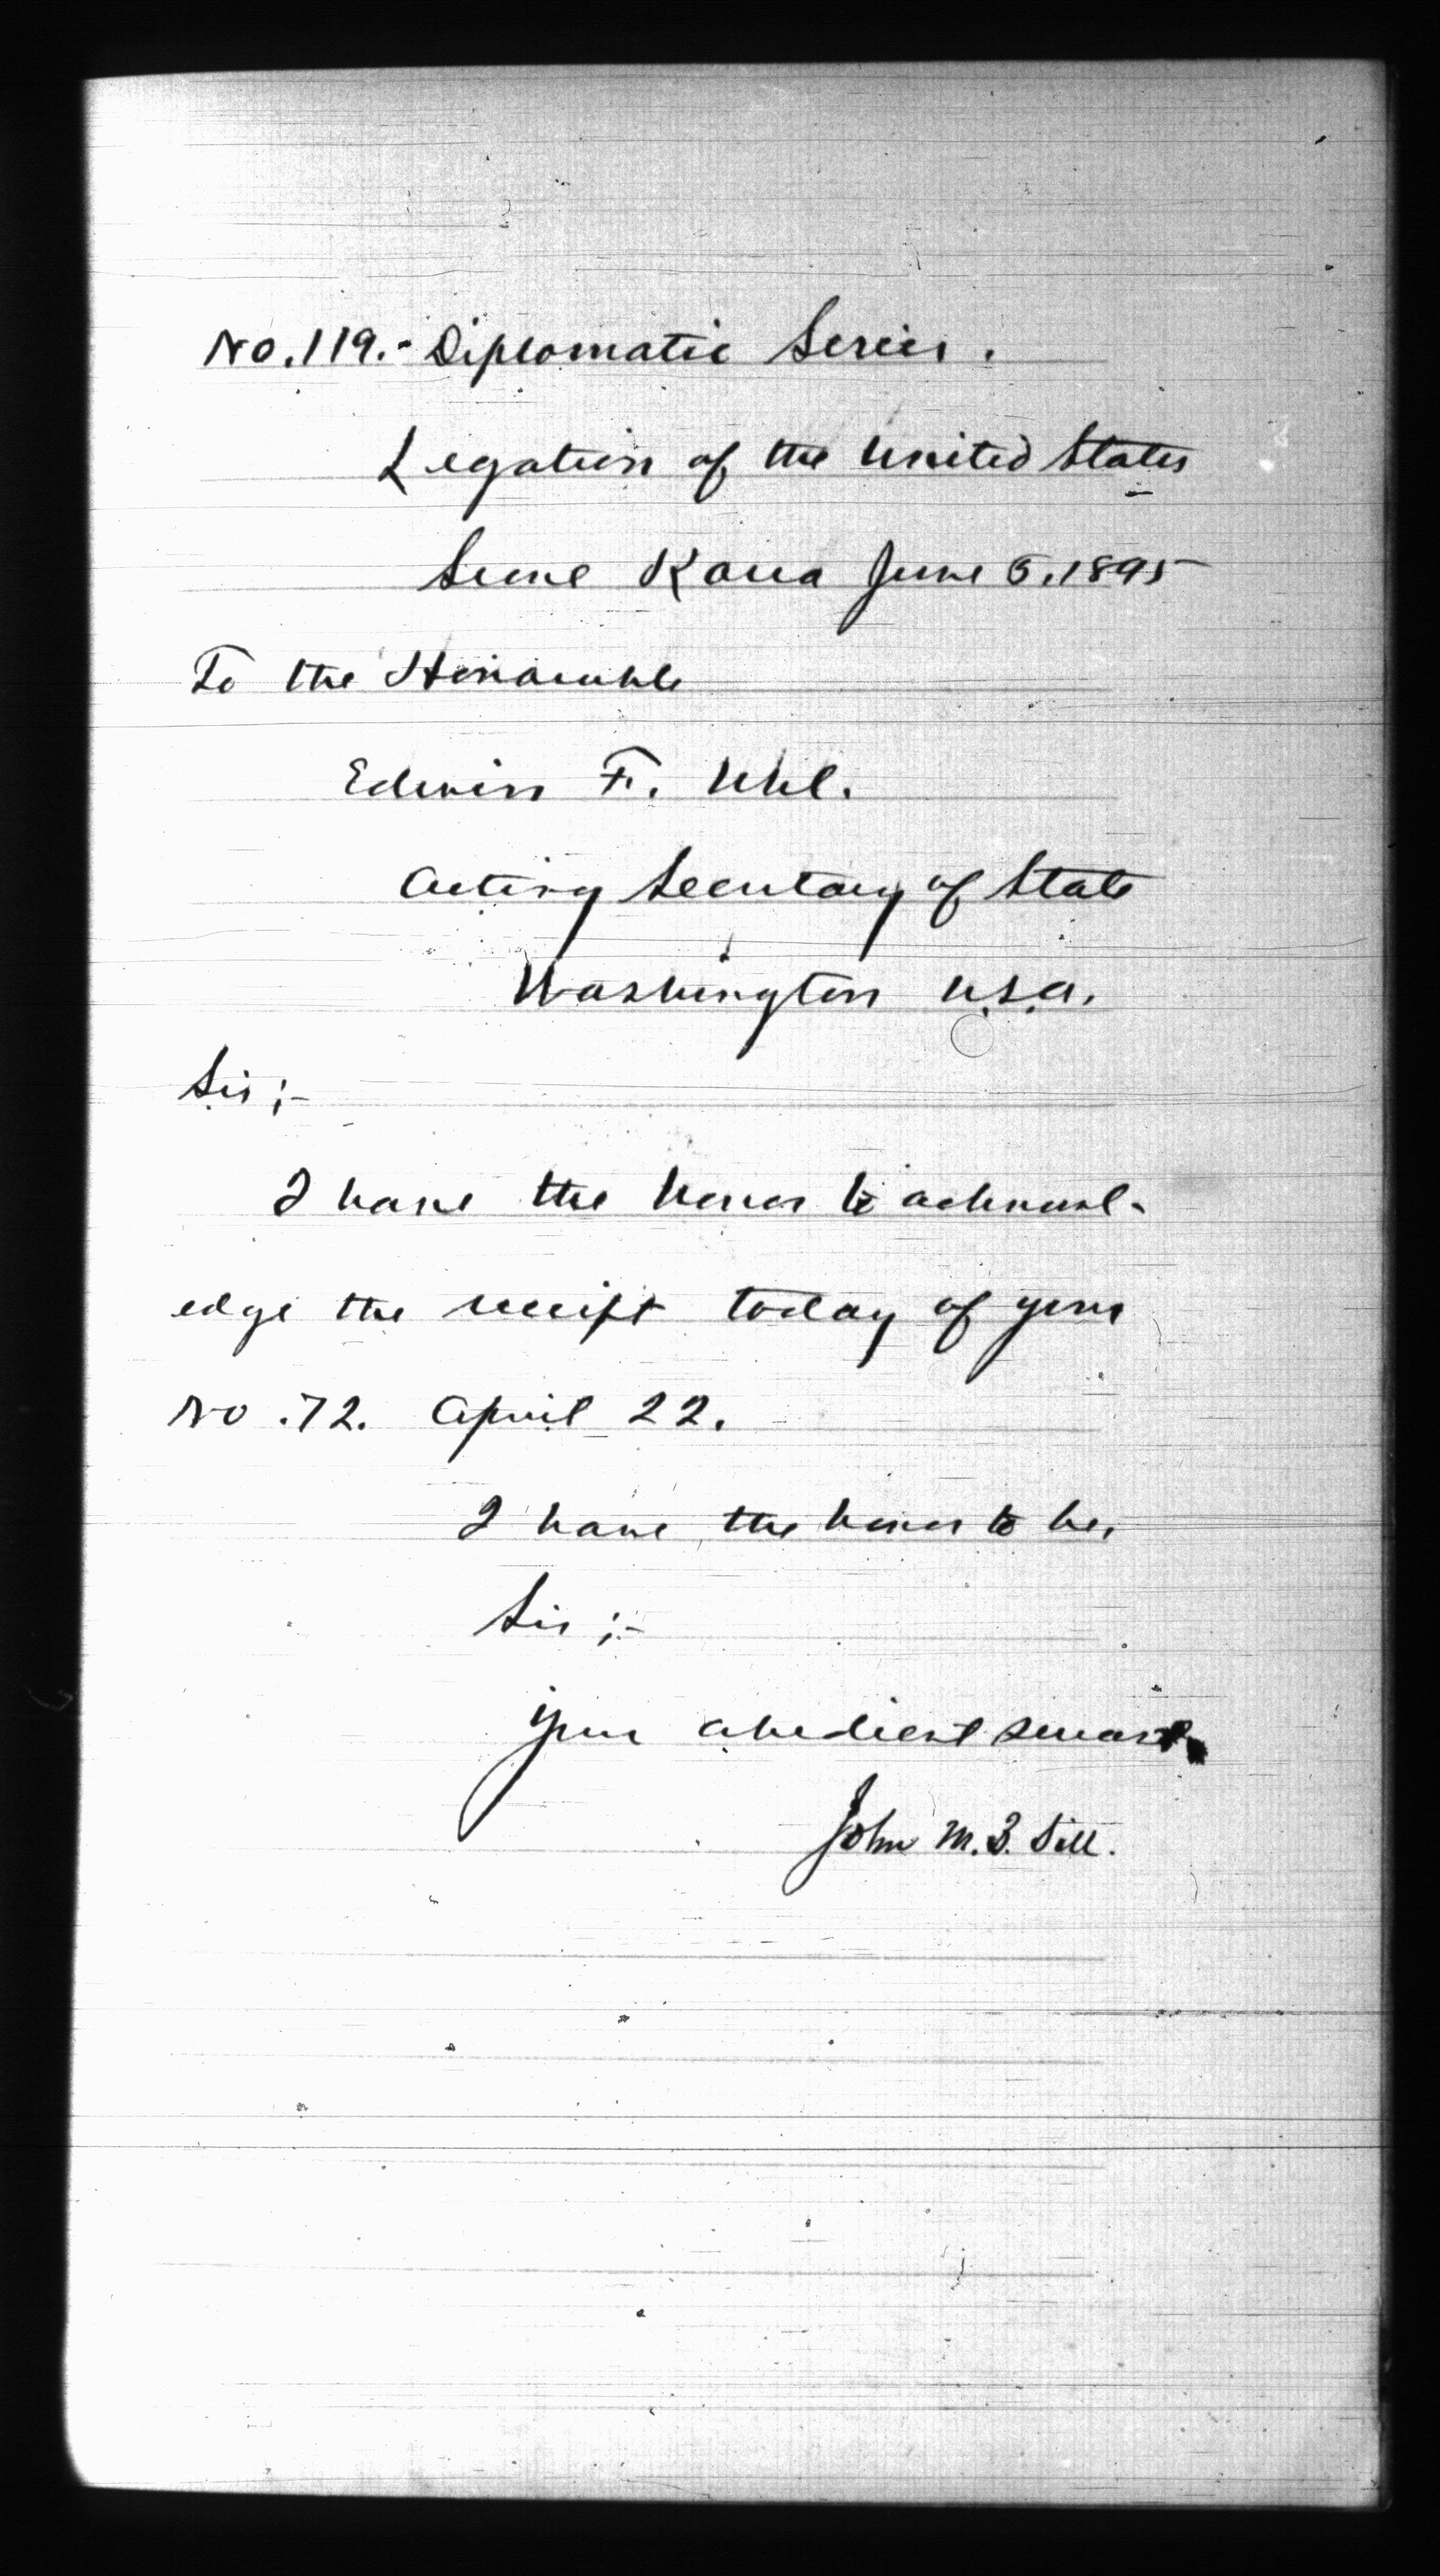 No. 119.- Diplomatic Series.
Legation of the United States
Seoul Korea June 5, 1895
To the Honorable
Edwin F. Uhl.
Acting Secretary of State
Washington U.S.A.
Sir;-
I have the honor to acknowl-
edge the receipt today of your
No. 72. April 22.
I have the honor to be,
Sir;-
Your obedient servant,
John M. B. Sill.